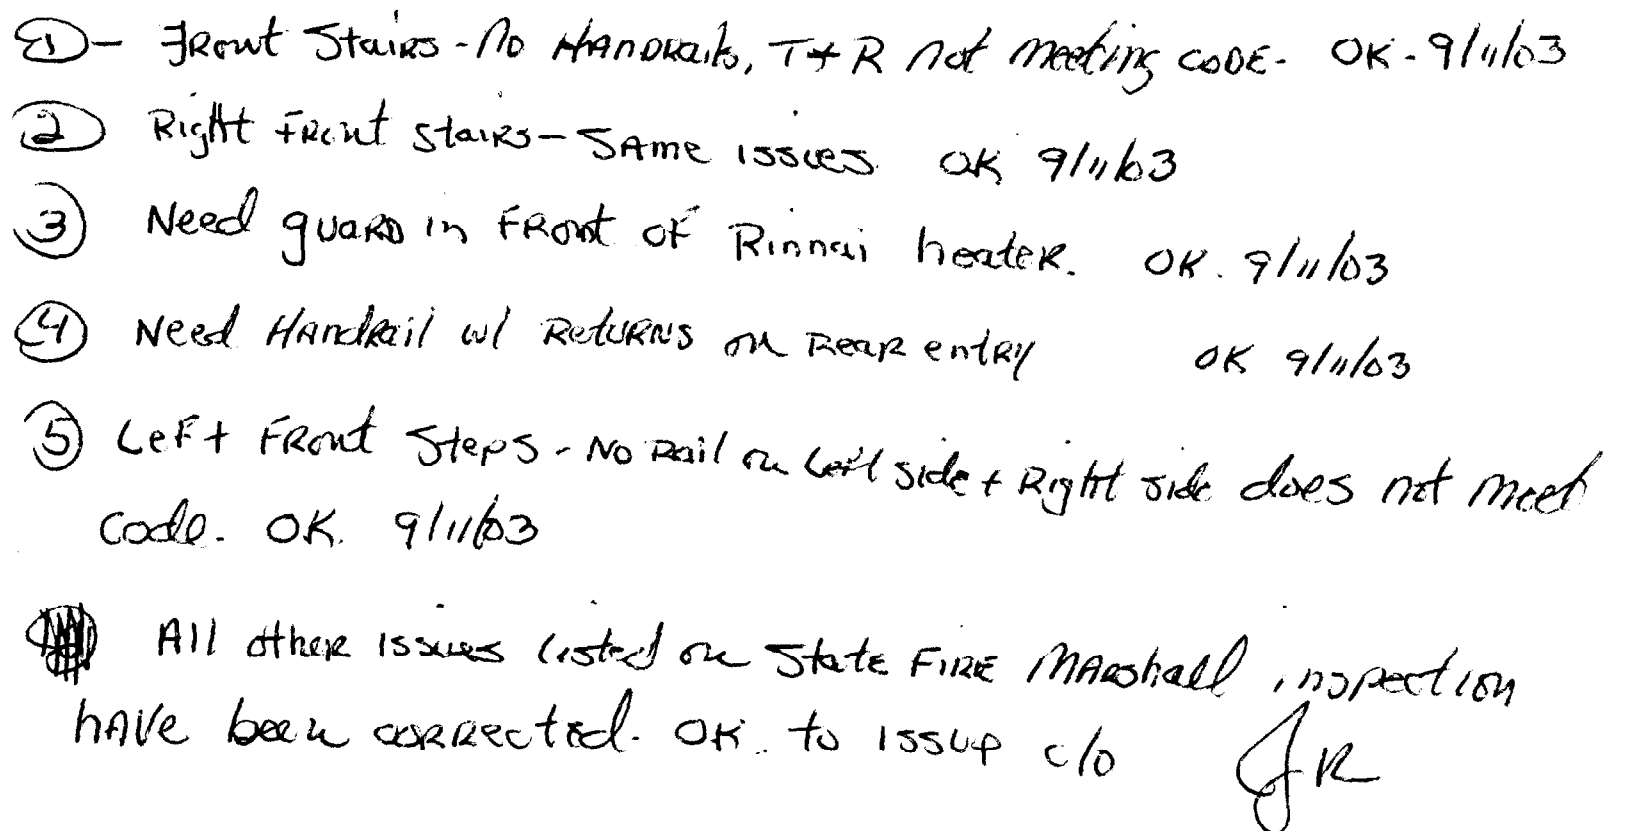 ① - Front Stairs - No Handrails, T+R not meeting code. OK - 9/11/03
② Right Front stairs - Same issues. OK 9/11/03
③ Need guard in front of Rinnai heater. OK. 9/11/03
④ Need Handrail w/ Returns on Rear entry OK 9/11/03
⑤ Left Front Steps - No Rail on Left side + Right side does not meet
code. OK. 9/11/03
All other issues listed on State Fire Marshall inspection
have been corrected. OK. to issue c/o JR